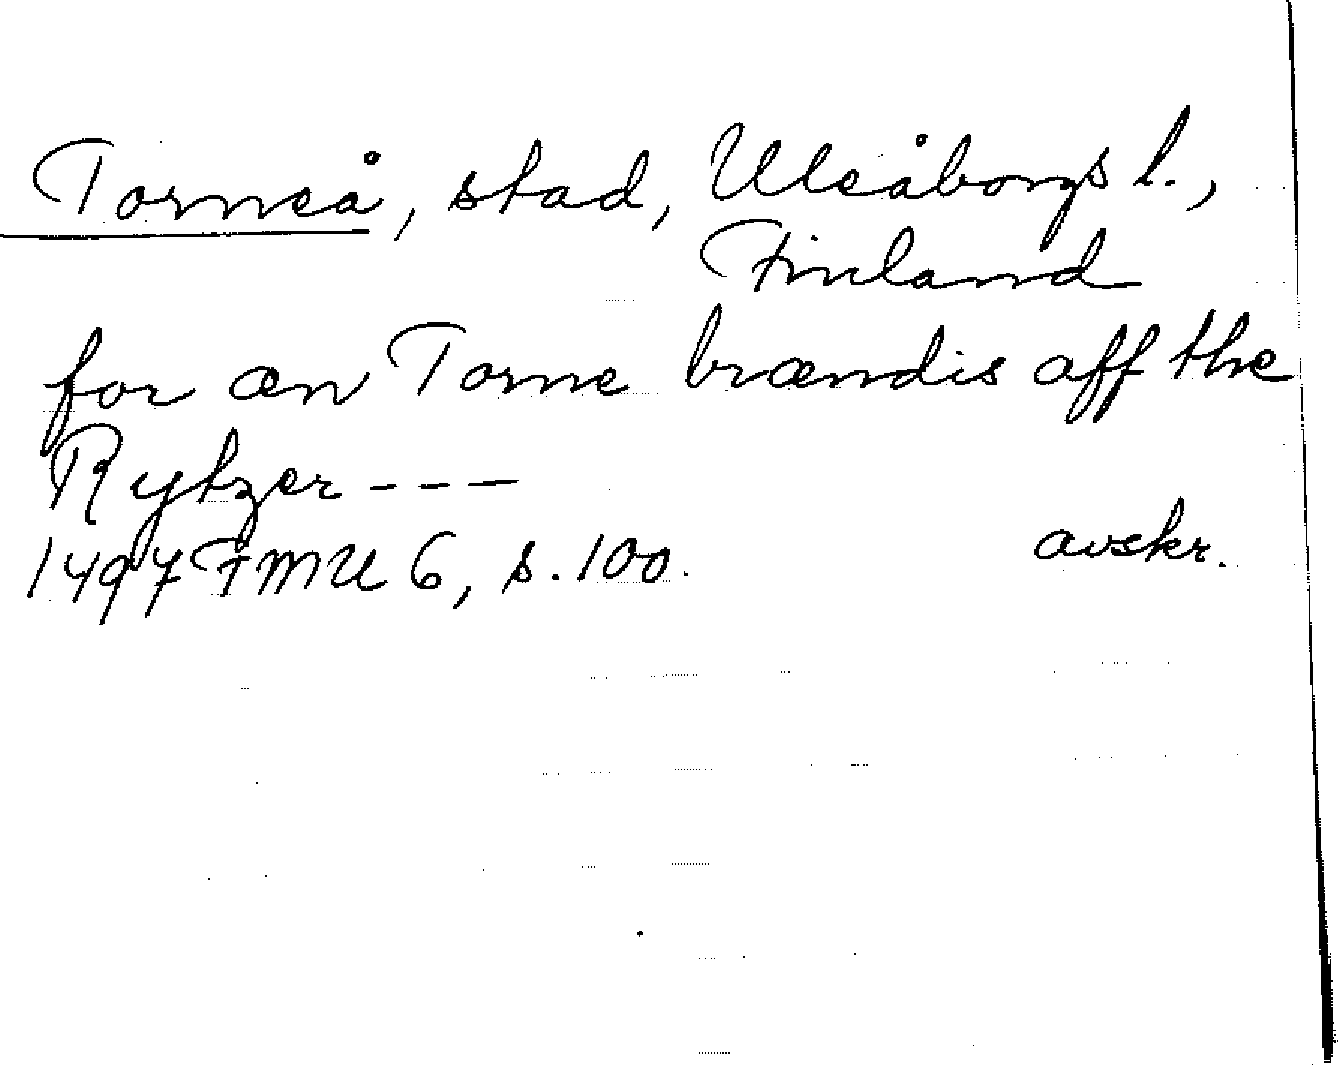 Torneå, stad, Uleåborgs l.,
Finland
for æn Torne brændis aff the
Rytzer - - -
1497 FMU 6, s. 100. avskr.